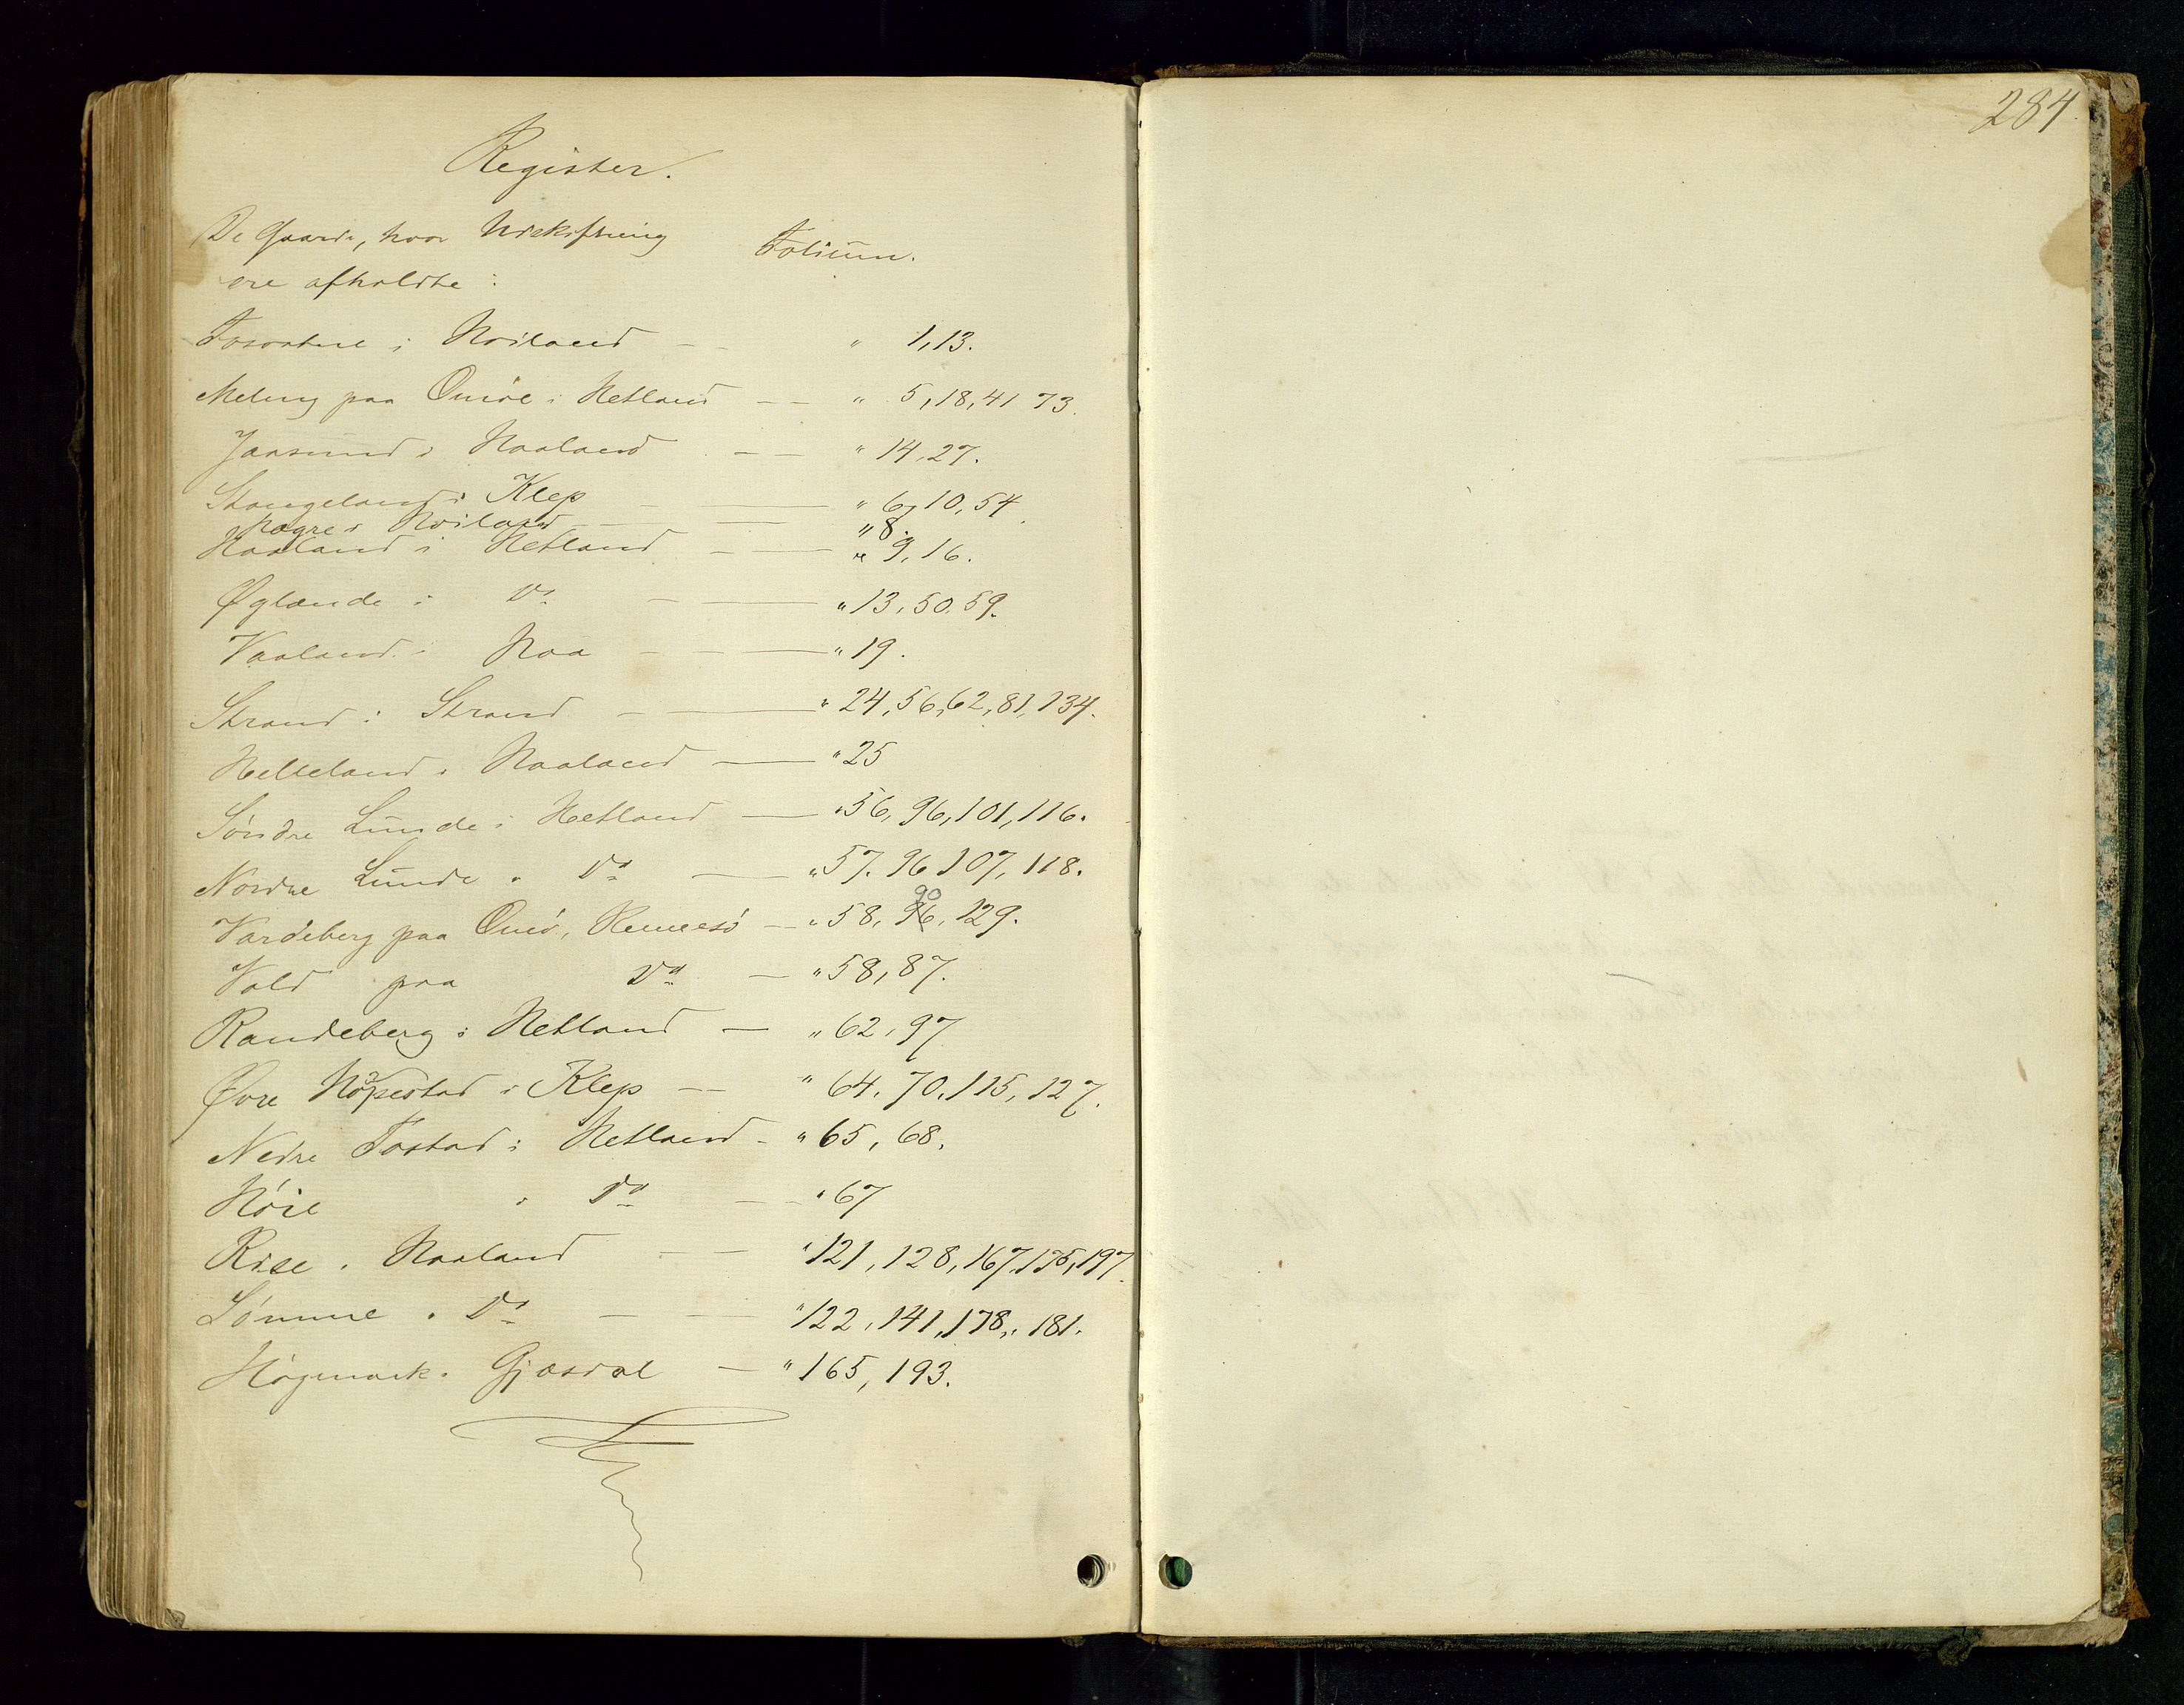 Register.
De Gaarde, hvor Udskiftning Folium.
ere afholdte:
i Høiland — — " 1, 13.
Meling paa Qvidø i Hetland — — " 5, 18, 41 73.
Jaasund i Haaland — — " 14, 27.
Stangeland i Klep — — " 6, 10, 54.
i Høiland — — " 8.
Haaland i Hetland — — " 9, 16.
Øglænde i Do — — " 13, 50. 59.
Vaaland i Haa — — " 19.
Strand i Strand — — " 24, 56, 62, 81, 134.
Helleland i Haaland — " 25
Søndre Lunde i Hetland — " 56, 96, 101, 116.
Nordre Lunde " Do — " 57. 96 107, 118.
90
Vardeberg paa — " 58, 96, 129.
Vold paa Do — " 58, 87.
Randeberg i Hetland — " 62, 97
Øvre i Klep — " 64, 70, 115, 127.
Nedre Tastad i Hetland - " 65, 68.
Høie i Do — — " 67
Rise i Haaland — — " 121, 128, 167, 175, 197.
Sømme " Do — — " 122, 141, 178, 181.
Høgmark i Gjæsdal — " 165, 193.
284.